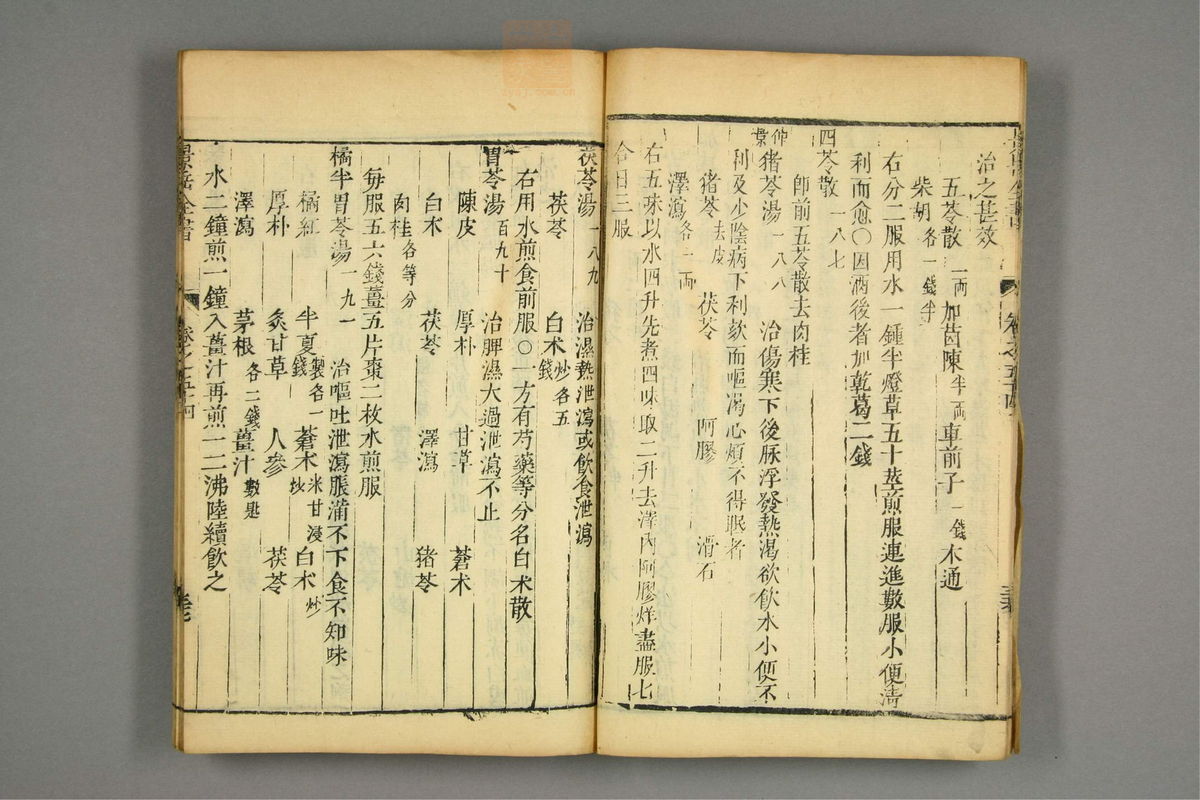 治之甚效
五苓散一両 加茵陳半両 車前子一錢 木通
柴胡各一錢半
右分二服用水一鍾半燈草五十莖煎服連進數服小便清
利而愈○因酒後者加乾葛二錢
四苓散一八七
卽前五苓散去肉桂
仲景猪苓湯一八八 治傷寒下後脉浮發熱渴欲飲水小便不
利及少陰病下利欬而嘔渴心煩不得眠者
猪苓去皮 茯苓 阿膠 滑石
澤瀉各一両
右五味以水四升先煮四味取二升去滓內阿膠烊盡服七
合日三服
茯苓湯一八九 治濕熱泄瀉或飲食泄瀉
茯苓 白术炒各五錢
右用水煎食前服○一方有芍藥等分名白术散
胃苓湯百九十 治脾濕大過泄瀉不止
陳皮 厚朴 甘草 蒼术
白术 茯苓 澤瀉 猪苓
肉桂各等分
每服五六錢薑五片棗二枚水煎服
橘半胃苓湯一九一 治嘔吐泄瀉脹滿不下食不知味
橘紅 半夏製各一錢 蒼术米甘浸炒 白术炒
厚朴 炙甘草 人參 茯苓
澤瀉 茅根各二錢 薑汁數匙
水二鐘煎一鐘入薑汁再煎一二沸陸續飲之
景岳全書 卷之五十四